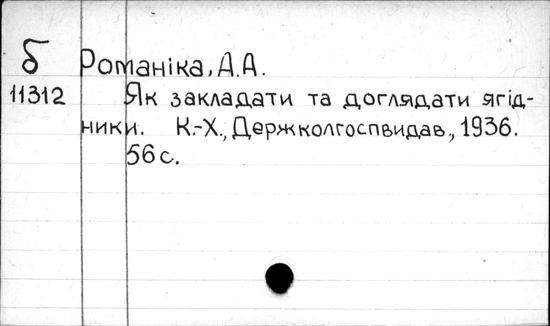 б Романіка, А.А.
11312 Як закладати та доглядати ягід-
ники. К.-Х., Держколгоспвидав, 1936.
56 с.